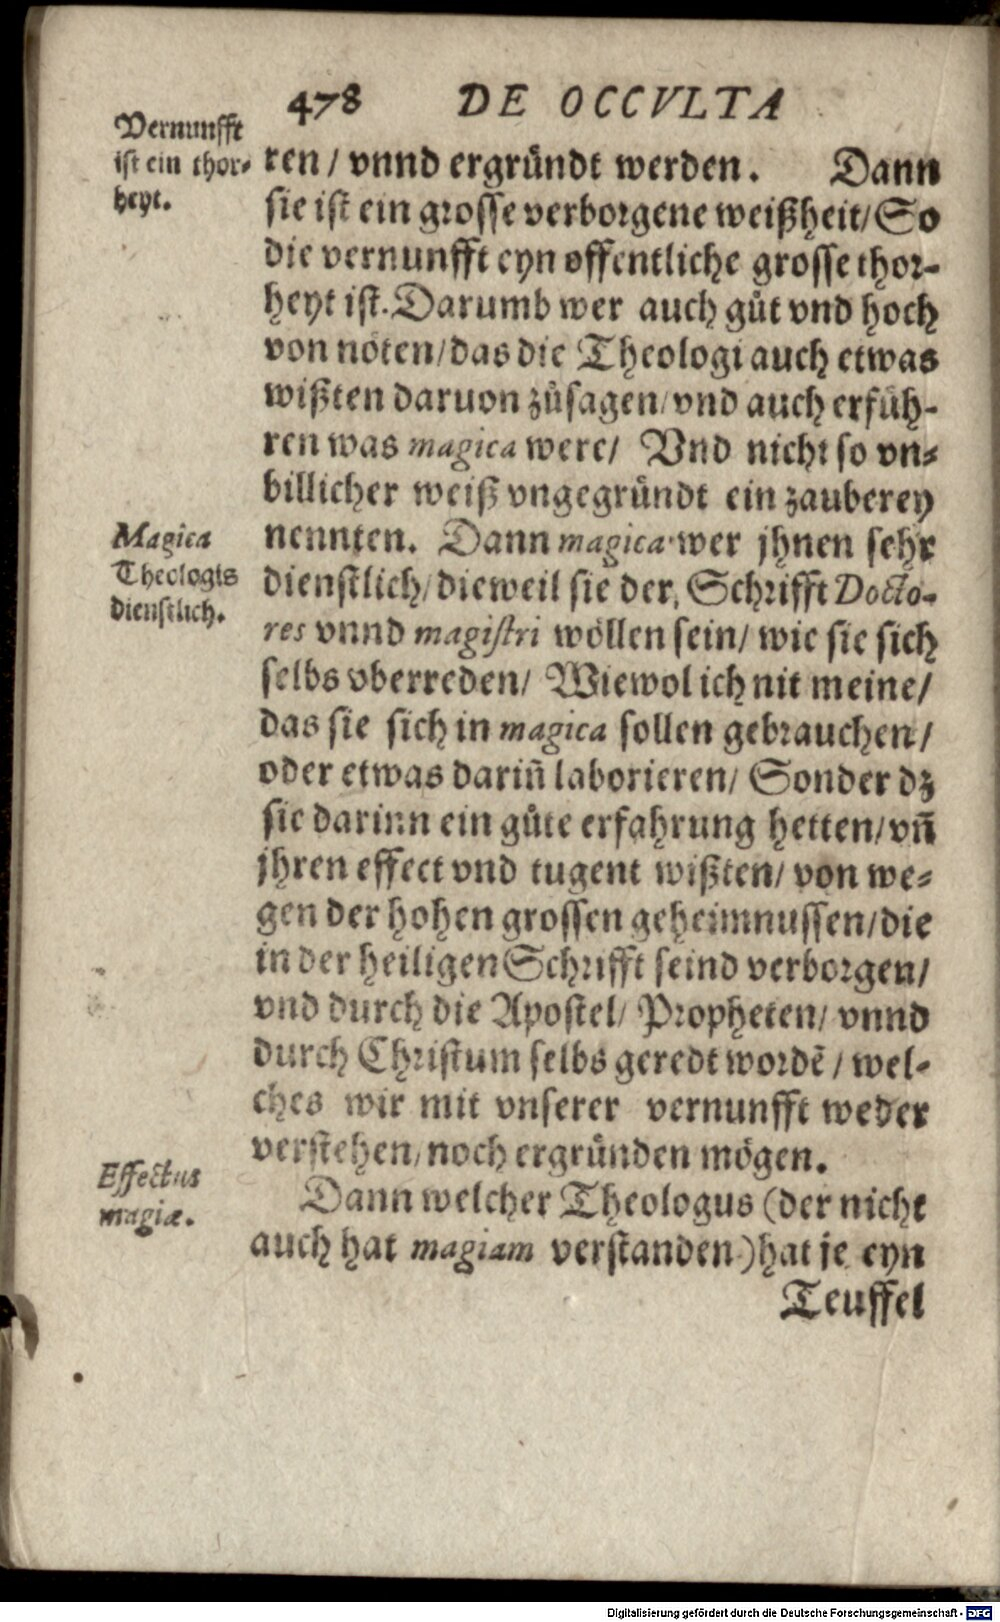 478 DE OCCVLTA
Vernunfft
ist ein thor-
heyt.
ren / vnnd ergründt werden. Dann
sie ist ein grosse verborgene weißheit / So
die vernunfft eyn offentliche grosse thor-
heyt ist. Darumb wer auch gůt vnd hoch
von nöten / das die Theologi auch etwas
wißten daruon zůsagen / vnd auch erfüh-
ren was magica were / Vnd nicht so vn-
billicher weiß vngegründt ein zauberey
Magica
Theologis
dienstlich.
nennten. Dann magica wer jhnen sehr
dienstlich / dieweil sie der Schrifft Docto-
res vnnd magistri wöllen sein / wie sie sich
selbs vberreden / Wiewol ich nit meine /
das sie sich in magica sollen gebrauchen /
oder etwas dariñ laborieren / Sonder dz
sie darinn ein gůte erfahrung hetten / vñ
jhren effect vnd tugent wißten / von we-
gen der hohen grossen geheimnussen / die
in der heiligen Schrifft seind verborgen /
vnd durch die Apostel / Propheten / vnnd
durch Christum selbs geredt wordẽ / wel-
ches wir mit vnserer vernunfft weder
verstehen / noch ergründen mögen.
Effectus
magiæ.
Dann welcher Theologus (der nicht
auch hat magiam verstanden) hat je eyn
Teuffel
Digitalisierung gefördert durch die Deutsche Forschungsgemeinschaft - DFG